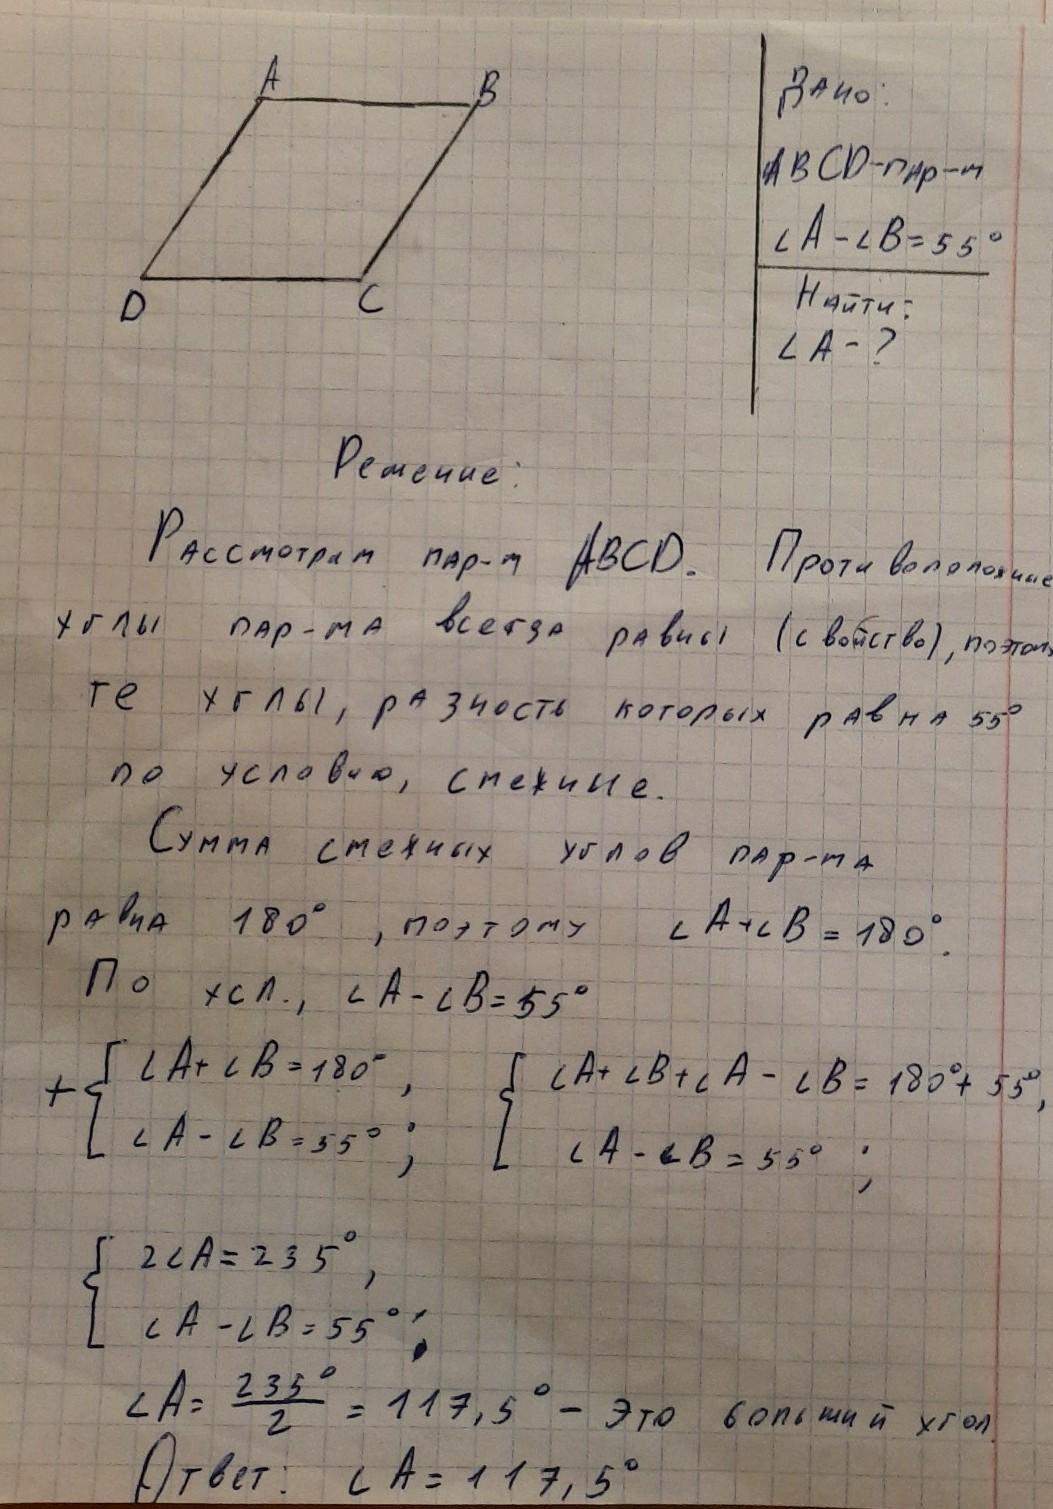 A
B
D
C
Дано:
ABCD-пар-м
∠A-∠B=55°
Найти:
∠A-?
Решение:
Рассмотрим пар-м ABCD. Противоположные
углы пар-ма всегда равны (свойство), поэтому
те углы, разность которых равна 55°
по условию, смежные.
Сумма смежных углов пар-ма
равна 180°, поэтому ∠A+∠B=180°.
По усл., ∠A-∠B=55°
+{ ∠A+∠B=180°, { ∠A+∠B+∠A-∠B=180°+55°,
∠A-∠B=55°; ∠A-∠B=55°;
{ 2∠A=235°,
∠A-∠B=55°;
∠A=235°/2=117,5°-это больший угол
Ответ: ∠A=117,5°